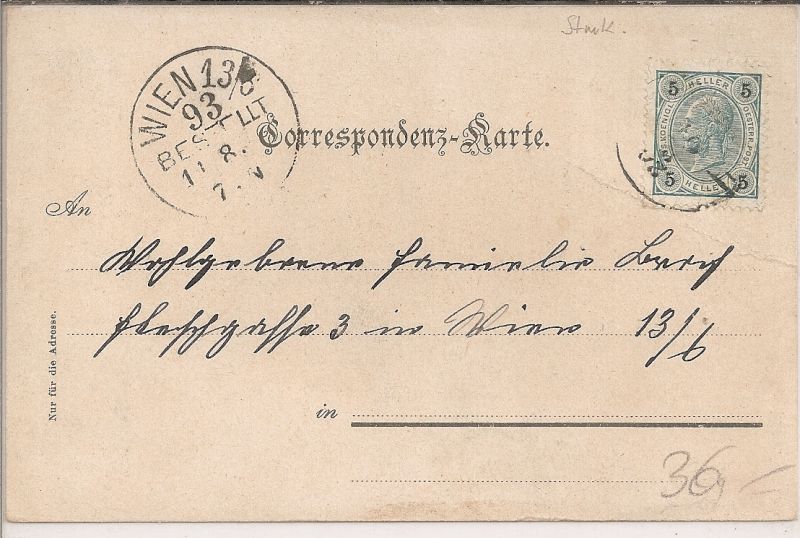 Stark.
WIEN 13/6
93
BESTELLT
11.8.
7.
Correspondenz-Karte.
5 HELLER 5
KAIS. KOENIGL. OESTERR. POST
5 HELLER 5
An
Wohlgeborene Familie
3 in Wien 13/6
in
Nur für die Adresse.
36,-